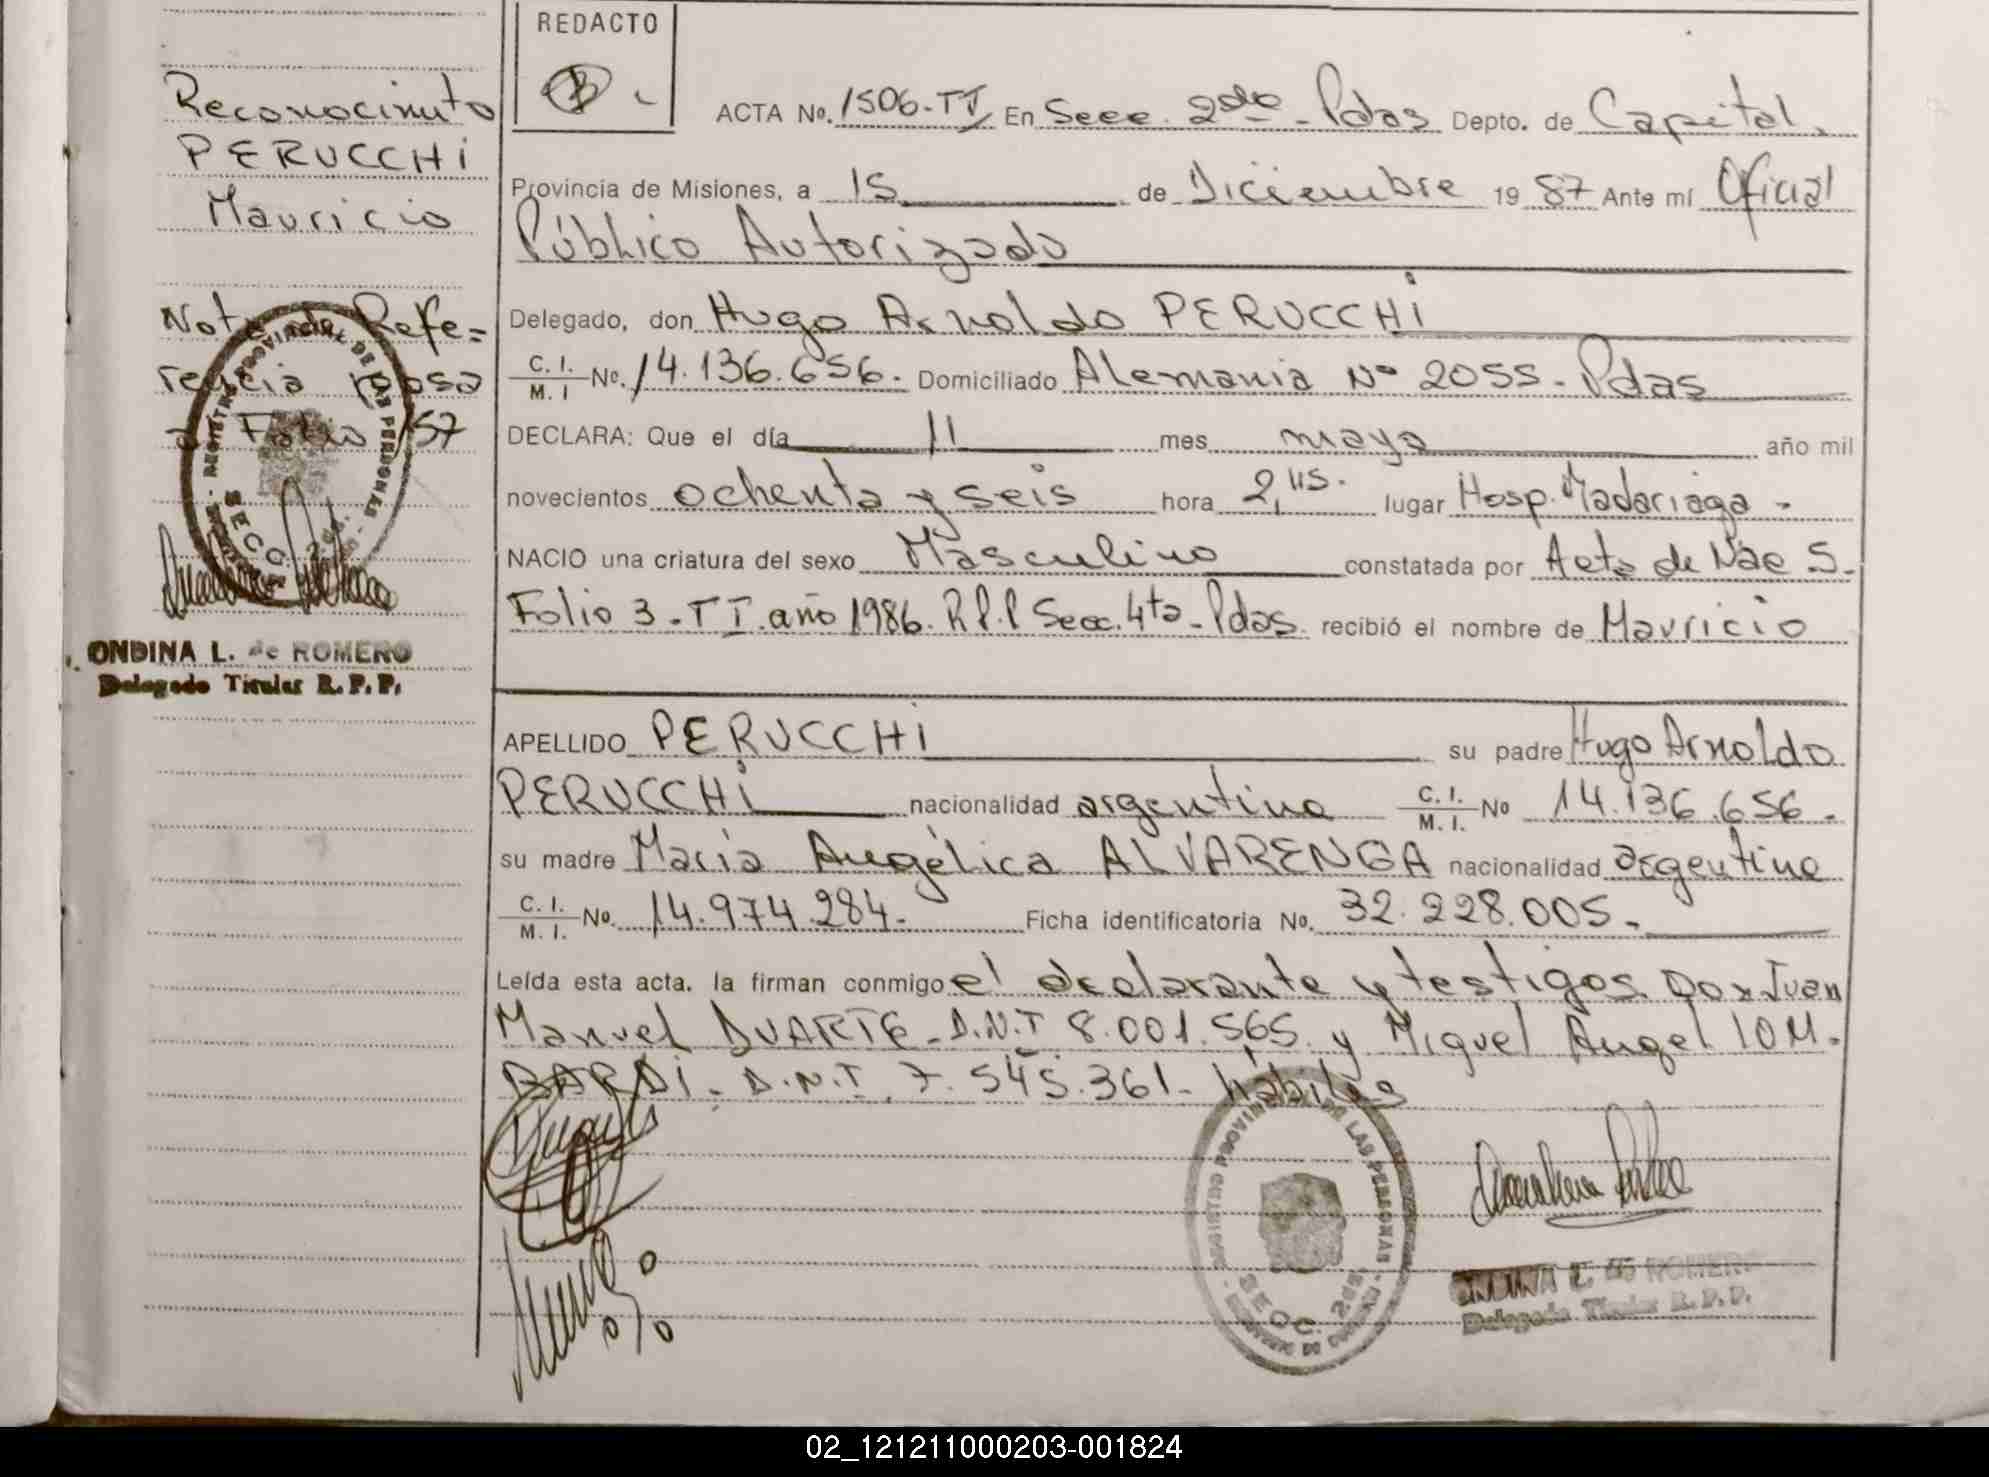 Reconocimnto
PERUCCHI
Mauricio
Nota Refe=
rencia pasa
a Folio 157
REGISTRO PROVINCIAL DE LAS PERSONAS
SECC. 2da.
ONDINA L. de ROMERO
Delegado Titular R. P. P.
REDACTO
ACTA No. 1506-TI En Secc. 2da - Pdas Depto. de Capital.
Provincia de Misiones, a 15 de Diciembre 1987 Ante mí Oficial
Público Autorizado
Delegado, don Hugo Arnoldo PERUCCHI
C. I. / M. I No. 14.136.656. Domiciliado Alemania Nº 2055. Pdas
DECLARA: Que el día 11 mes mayo año mil
novecientos ochenta y seis hora 2,115. lugar Hosp. Madariaga -
NACIO una criatura del sexo Masculino constatada por Acta de Nac 5.
Folio 3 - T I. año 1986. R.P.P Secc. 4ta - Pdas. recibió el nombre de Mauricio
APELLIDO PERUCCHI su padre Hugo Arnoldo
PERUCCHI nacionalidad argentina C. I. / M. I. No 14.136.656.
su madre María Angélica ALVARENGA nacionalidad argentina
C. I. / M. I. No. 14.974.284. Ficha identificatoria No. 32.228.005.
Leída esta acta. la firman conmigo el declarante y testigos Don Juan
Manuel DUARTE - D.N.I 8.001.565. y Miguel Angel LOM-
BARDI - D.N.I. 7.545.361 - hábiles
REGISTRO PROVINCIAL DE LAS PERSONAS
SECC. 2da.
ONDINA L. de ROMERO
Delegado Titular R. P. P.
02_121211000203-001824